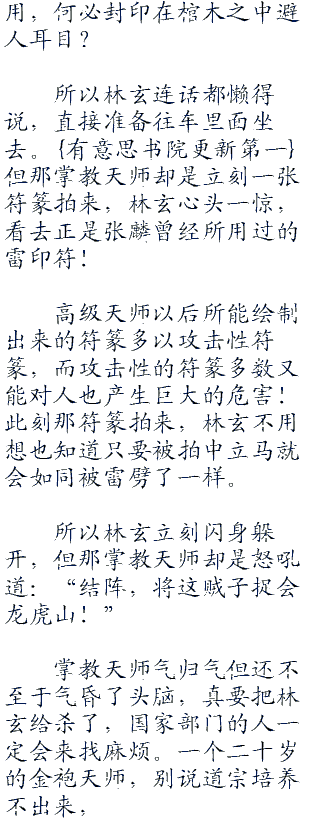 用，何必封印在棺木之中避
人耳目？
所以林玄连话都懒得
说，直接准备往车里面坐
去。{有意思书院更新第一}
但那掌教天师却是立刻一张
符篆拍来，林玄心头一惊，
看去正是张麟曾经所用过的
雷印符！
高级天师以后所能绘制
出来的符篆多以攻击性符
篆，而攻击性的符篆多数又
能对人也产生巨大的危害！
此刻那符篆拍来，林玄不用
想也知道只要被拍中立马就
会如同被雷劈了一样。
所以林玄立刻闪身躲
开，但那掌教天师却是怒吼
道：“结阵，将这贼子捉会
龙虎山！”
掌教天师气归气但还不
至于气昏了头脑，真要把林
玄给杀了，国家部门的人一
定会来找麻烦。一个二十岁
的金袍天师，别说道宗培养
不出来，